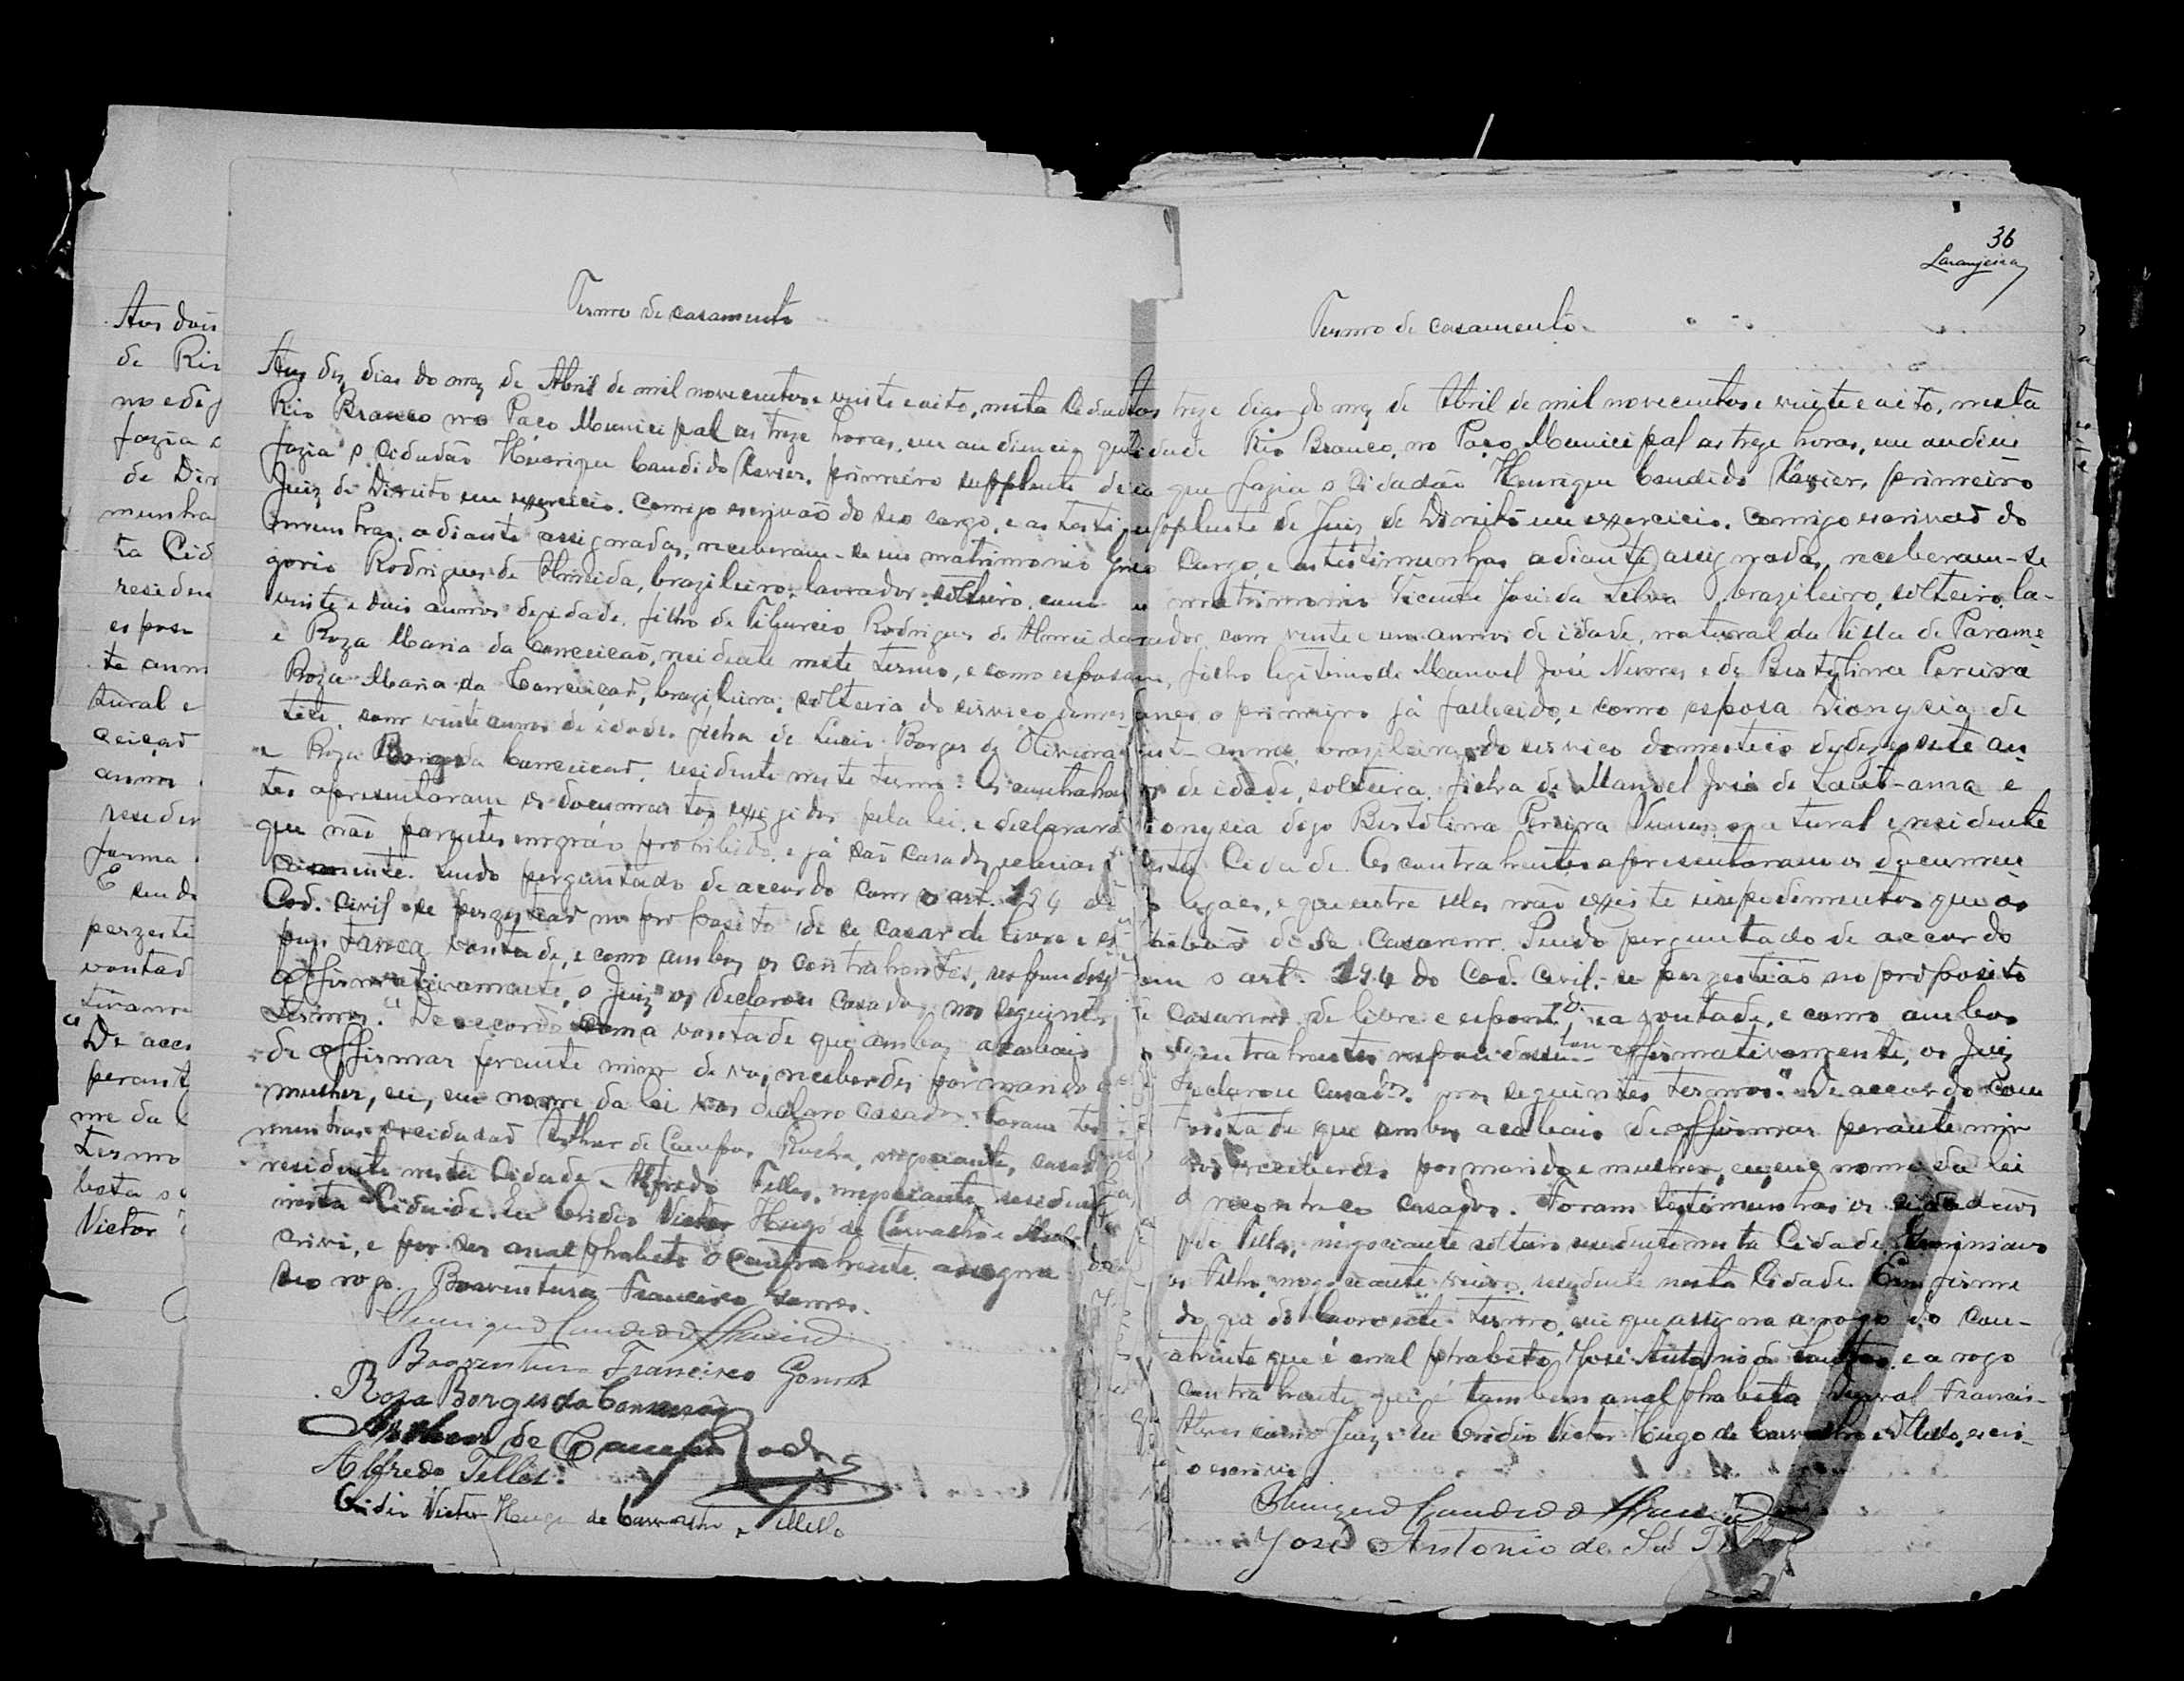 Aos dois
de Rio
no edi
fazia o
de Dir
munha
ta Cid
residen
espos
te ann
tural e
ceiçaõ
annos
residen
forma
E sendo
perzeste
vontad
tivame
"De acco
perant
me da l
termo
Victor
Termo de casamento
Aos dez dias do mez de Abril de mil novecentos e vinte e oito, nesta Cidade
Rio Branco no Paço Municipal as treze horas, em audiencia que
fazia o Cidadão Henrique Candido Xavier, primeiro supplente de
Juiz de Direito em exercicio, comigo escrivaõ do seo cargo, e as teste
munhas adiante assignadas, receberam-se em matrimonio Gre
gorio Rodrigues de Almeida, brazileiro, lavrador, solteiro, com
vinte e dois annos de idade, filho de Tiburcio Rodrigues de Almeida
e Roza Maria da Conceicaõ, residente neste termo, e como esposa
Roza Maria da Conceiçaõ, brazileira, solteira do serviço domes
tico, com vinte annos de idade, filha de Lucio Borges de Oliveira
e Roza Borges da Conceicaõ, residente neste termo: Os contrahen
tes apresentaram os documentos exigidos pela lei, e declararaõ
que não parentes em gráo prohibido, e já são casados religios
camente. Sendo perguntado de accordo com o art. 194 do
Cod. Civil se perzisteaõ no proposito de se casar de livre e es
pontanea vontade, e como ambos os contrahentes, respondes
affirmativamente, o Juiz os declarou casados nos seguintes
termos. "De accordo com a vontade que ambos acabais
de affirmar perante mim de vos receberdes por marido e
mulher, eu, em nome da lei vos declaro casados. Foram tes
munhas o cidadaõ Arthur de Campos Rocha, negociante, casado
residente nesta Cidade - Alfredo Telles, negociante, residente
nesta Cidade. Eu Ovidio Victor Hugo de Carvalho e Mello
crivi, e por ser analphabeto o Contrahente assigna
seo rogo. Boaventura Francisco Gomes.
Boaventura Francisco Gomes
Roza Borges da Conceisaõ
Arthur de Campos Rocha
Alfredo Telles.
Ovidio Victor Hugo de Carvalho e Mello
36
Laranjeira
Termo de casamento
Aos treze dias do mez de Abril de mil novecentos e vinte e oito, nesta
Cidade Rio Branco, no Paço Municipal as treze horas, em audien
cia que fazia o Cidadão Henrique Candido Xavier, primeiro
supplente de Juiz de Direito em exercicio, comigo escrivaõ do
seo Cargo, e as testimunhas adiante assignadas, receberam-se
em matrimonio Vicente José da Silva brazileiro, solteiro, la-
vrador, com vinte e um annos de idade, natural da Villa de Parame
filho legitimo de Manoel José Nunes e de Bertolina Pereira
Nunes, o primeiro já fallecido, e como esposa Dionysia de
Sant-anna, brazileira, do serviço domestico de dezesete an
nos de idade, solteira, filha de Manoel José de Sant-anna e
Dionysia digo Bertolina Pereira Nunes, natural e residente
nesta Cidade. Os contrahentes apresentaram os documen
tos legaes, e que entre elles não existe impedimentos que os
inhibaõ de se casarem. Sendo perguntado de accordo
com o art. 194 do Cod. Civil, se perzisteãs no proposito
de casarem de livre e espont, ea vontade, e como ambos
contrahentes respondessem affirmativamente, os Juiz
declarou casados. nos seguintes termos. "De accordo com
vontade que ambos acabais de affirmar perante mim
vos receberdes por marido e mulher, eu, em nome da lei
reconheço casados. Foram testimunhas os cidadãos
Telles, negociante solteiro residente nesta Cidade
Filho, negociante, residente nesta Cidade. Em firme
do que do lavro este termo, em que assigna a rogo do con-
trahente que é analphabeto José Antonio de e a rogo
contrahente que é tambem analphabeta Durval Francis-
Alves como Juiz. Eu Ovidio Victor Hugo de Carvalho e Mello, escri-
o escrivi
José Antonio de Sá Filho